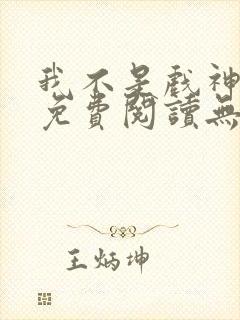 我不是戏神
免費閱讀無
王炳坤